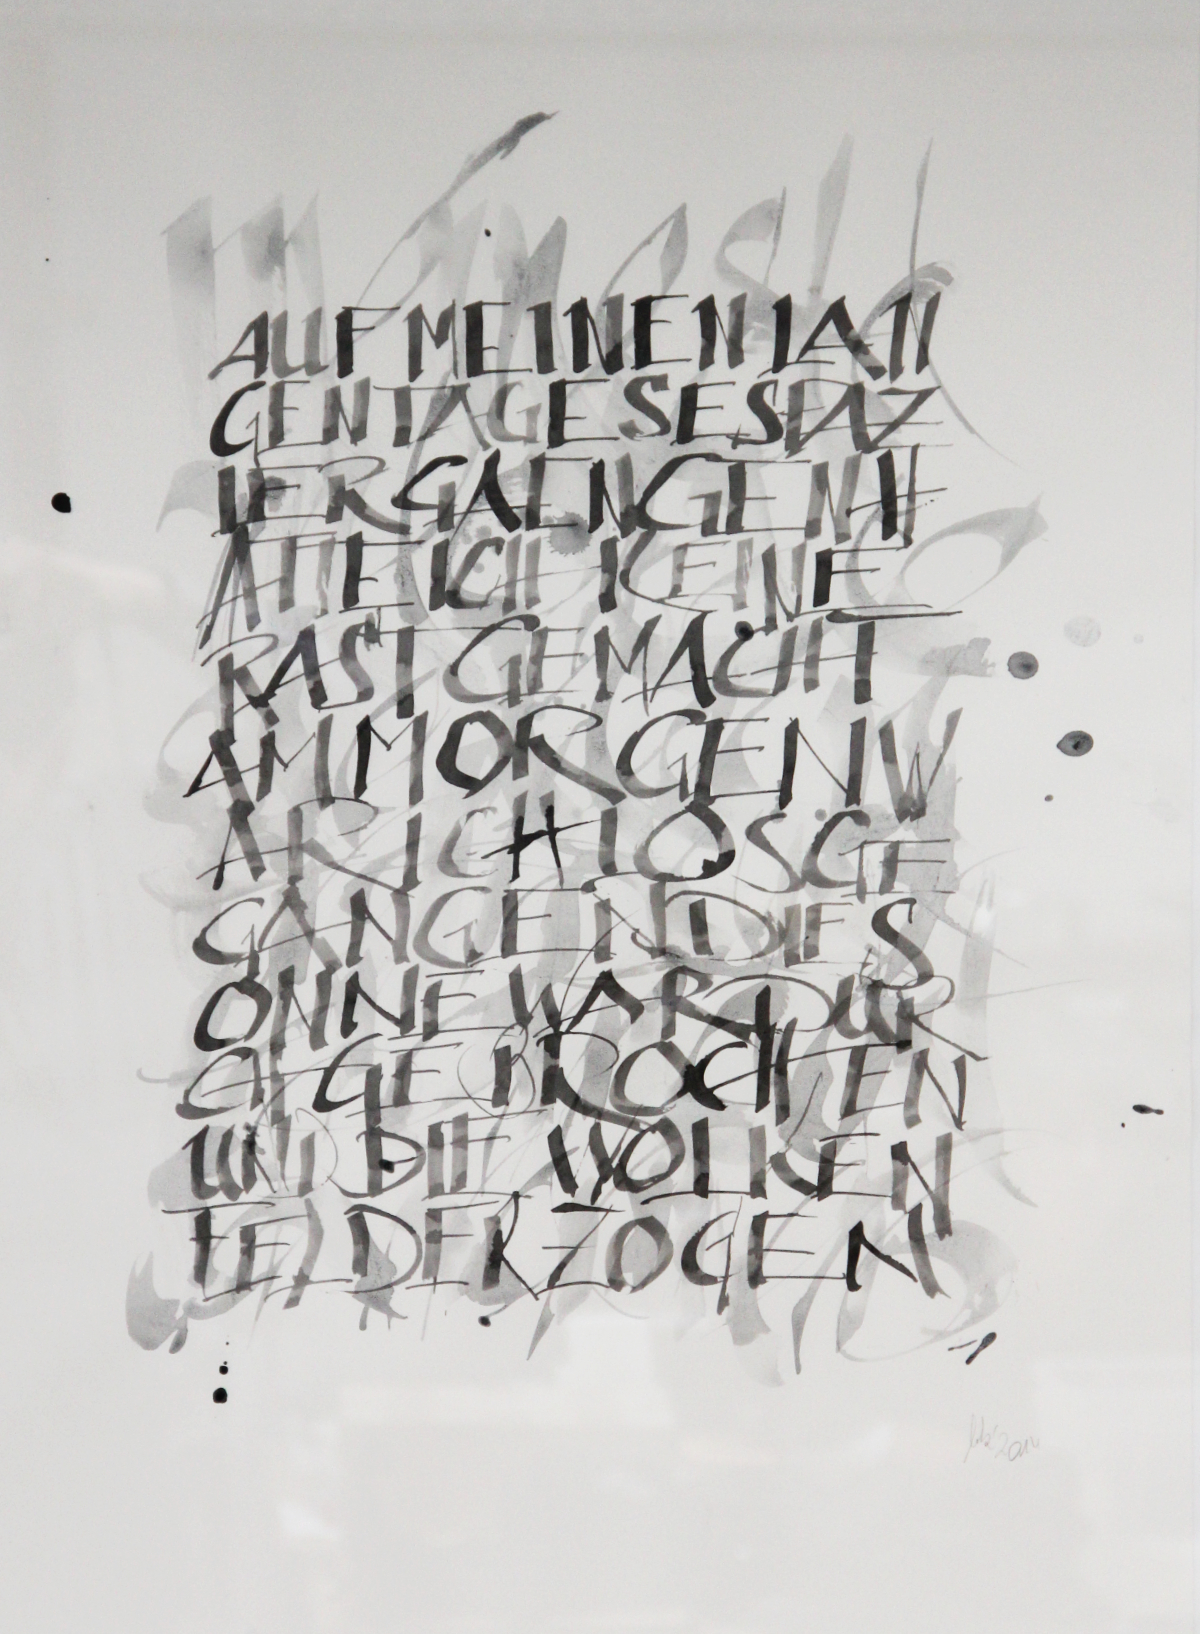 AUF MEINEN LAN
GEN TAGESESPAZ
IERGAENGEN H
ATTE ICH KEINE
RAST GEMACHT
AM MORGEN W
AR ICH LOSGE
GANGEN DIE S
ONNE WAR DUR
CHGEBROCHEN
UND DIE WOLKEN
FELDER ZOGEN